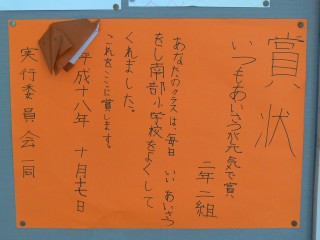 賞状
いつもあいさつが元気で賞
二年二組
あなたのクラスは、毎日いいあいさつ
をし南部小学校をよくして
くれました。
これをここに賞します。
平成十八年 十月十七日
実行委員会一同